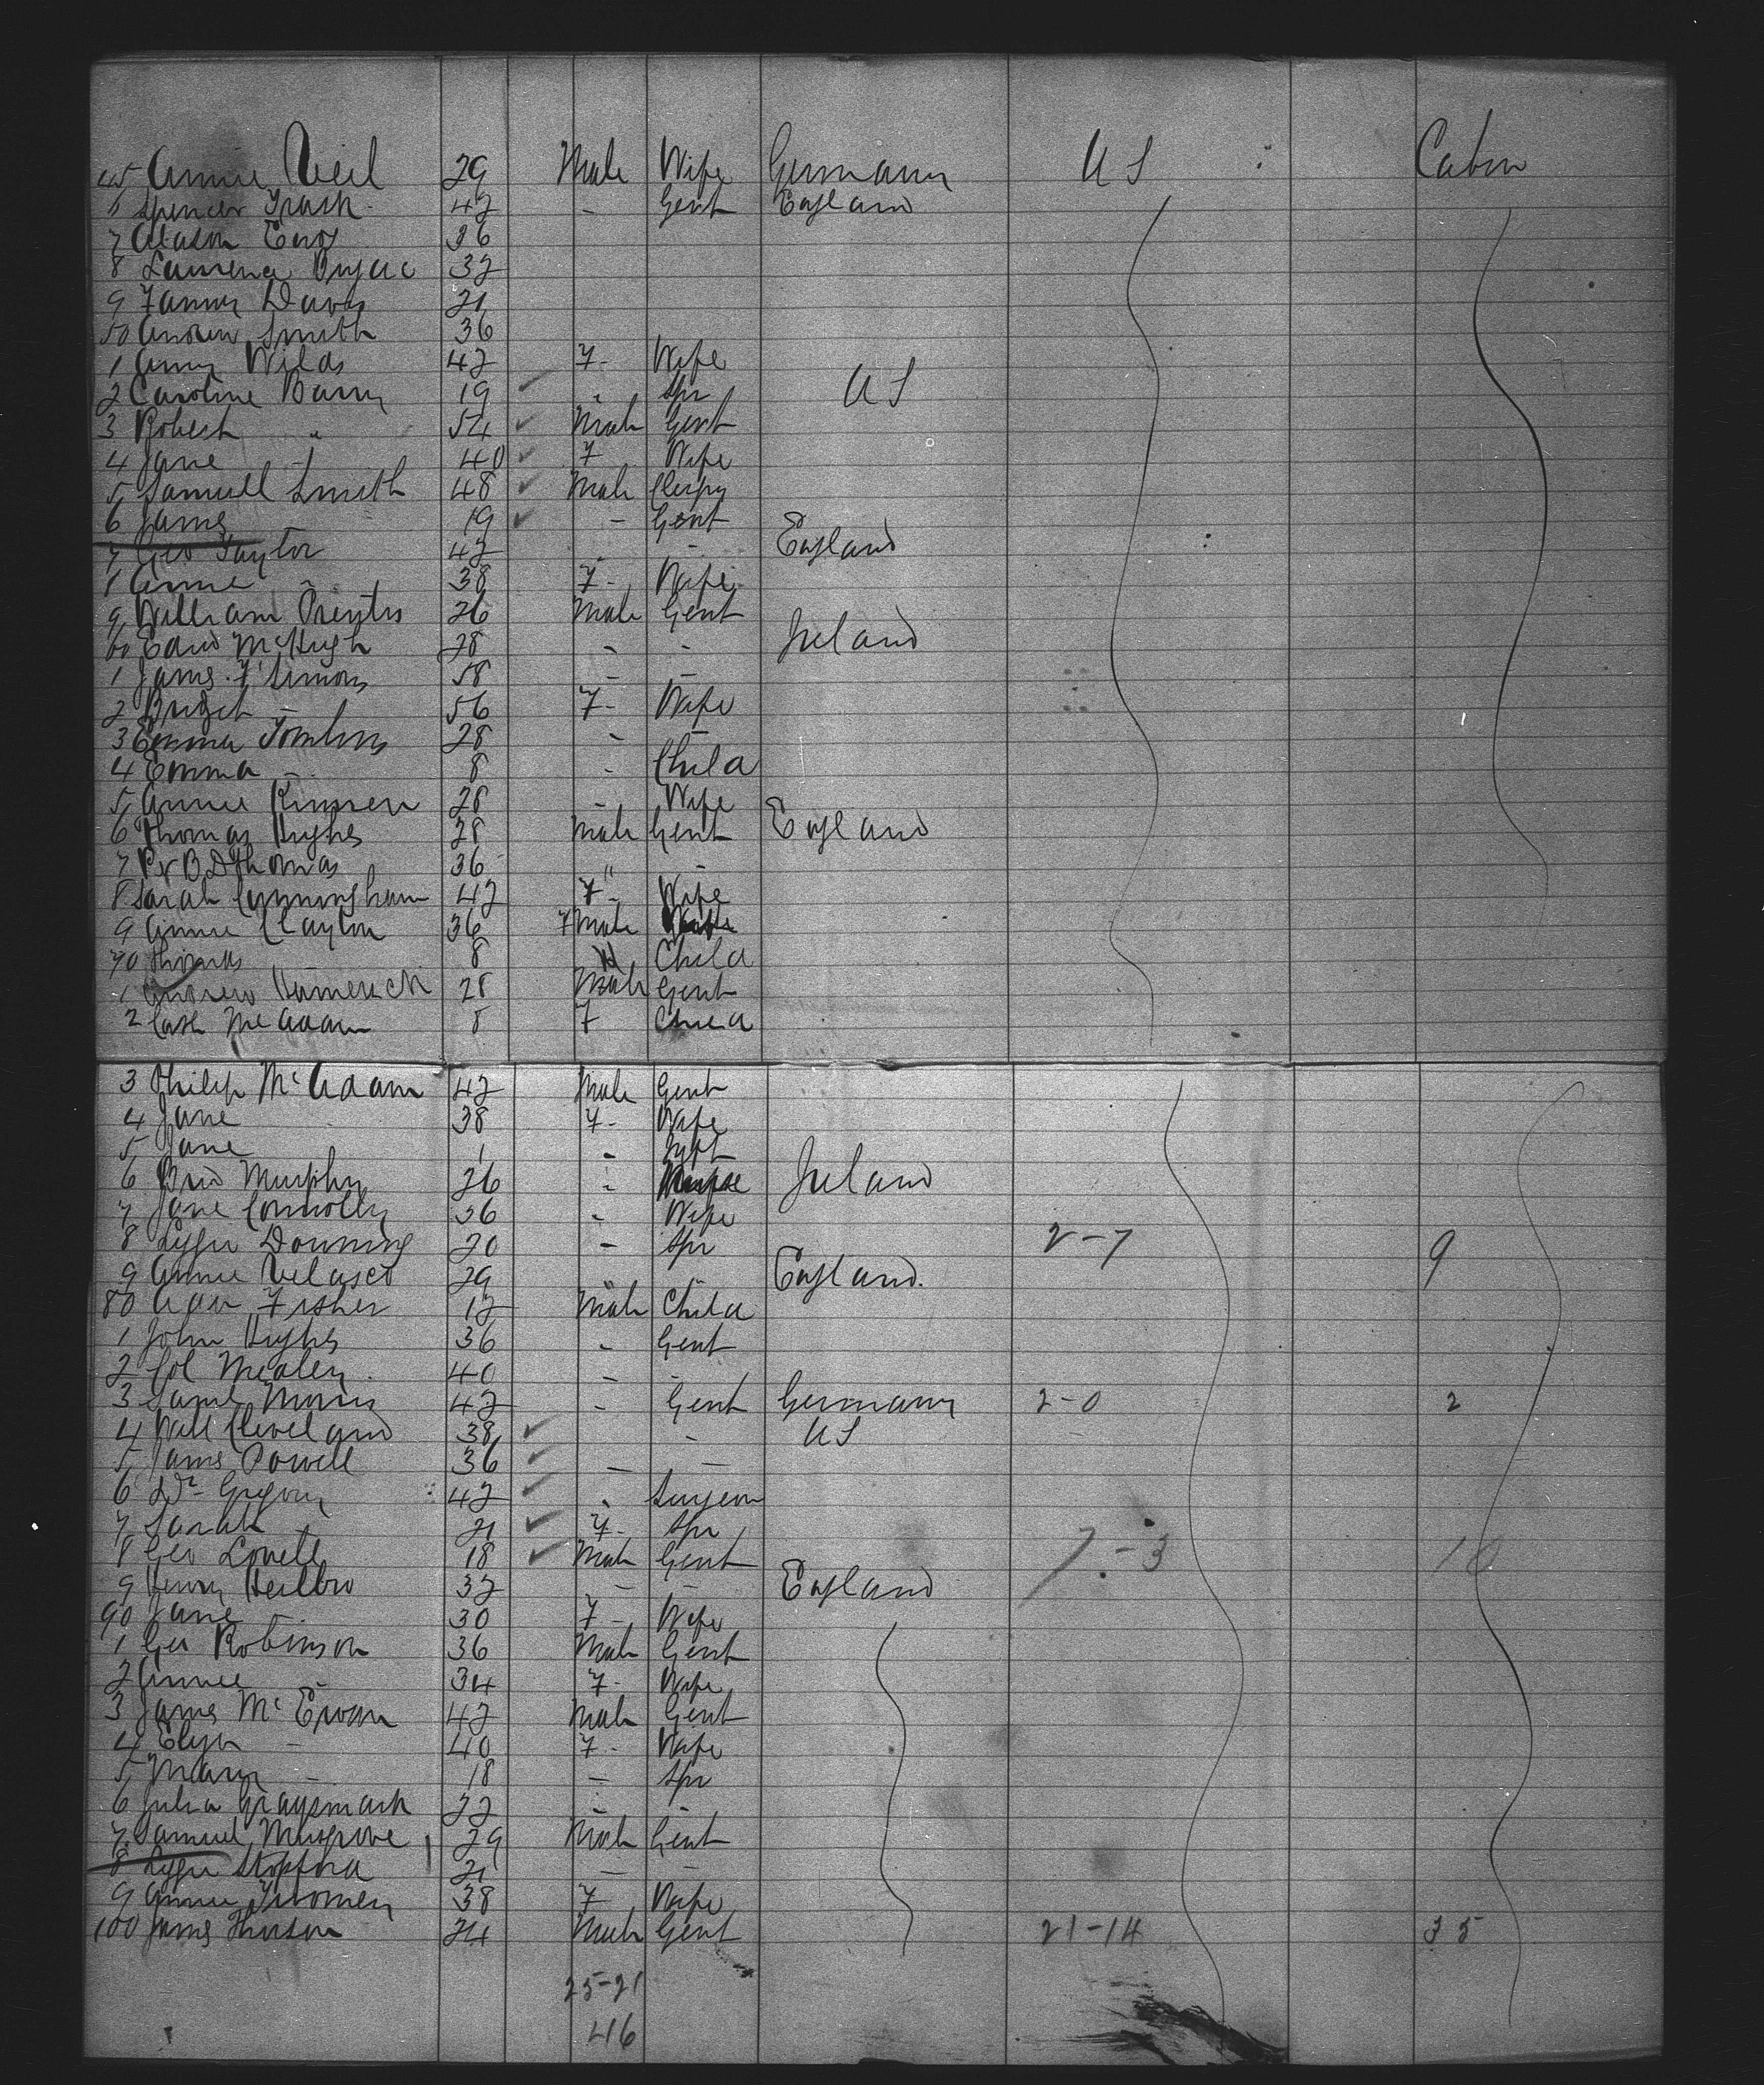 45 Annie Veil 29 Male Wife Germany U S Cabin
6 Spencer Trask 42 - Gent England
7 36
8 32
9 Fanny Davis 21
50 Andrew Smith 36
1 Amy Wilds 42 F- Wife
2 Caroline Barry 19 ✓ " Spr U S
3 Robert " 54 ✓ Male Gent
4 Jane 40 ✓ F Wife
5 Samuel Smith 48 ✓ Male Clergy
6 James 19 ✓ - Gent
7 Geo Taylor 42 - - England
8 Annie 38 F- Wife
9 William Prentis 26 Male Gent
60 Edwd McHugh 28 - - Ireland
1 James F'Simons 58 - -
2 Bridget - 56 F- Wife
3 Emma Tomlins 28 - -
4 Emma - 8 - Child
5 Annie 28 - Wife
6 Thomas Hughes 28 Male Gent England
7 Thomas 36 " -
8 Sarah Cunningham 42 F- Wife
9 Annie Clayton 36 F Male
70 Thomas 8 Child
1 Andrew 28 Male Gent
2 Cath McAdam 8 F Child
3 Philip McAdam 42 Male Gent
4 Jane 38 F- Wife
5 Jane 1 - Inft
6 Brid Murphy 26 - Nurse Ireland
7 Jane Connolly 36 - Wife
8 Lizzie Downing 20 - Spr 2-7 9
9 Annie Velasco 29 " " England.
80 Fisher 12 Male Child
1 John Hughes 36 - Gent
2 Col Mealey 40 -
3 Saml Morris 42 - Gent Germany 2-0 2
4 Will Cleveland 38 ✓ - U S
5 James Powell 36 ✓ - -
6 Dr Gregory 42 ✓ " Surgeon
7 Sarah 21 ✓ F- Spr
8 Geo Lovell 18 ✓ Male Gent 7-3 10
9 Henry 32 - - England
90 Jane 30 F- Wife
1 Geo Robinson 36 Male Gent
2 Annie - 34 F- Wife
3 James McEwan 42 Male Gent
4 Eliza - 40 F- Wife
5 Mary - 18 - Spr
6 Julia Graysmark 22 " -
7 Samuel Musgrove 29 Male Gent
8 Lizzie Stopford 21 - -
9 Annie Twomey 38 F Wife
100 James 24 Male Gent 21-14 35
25-21
46